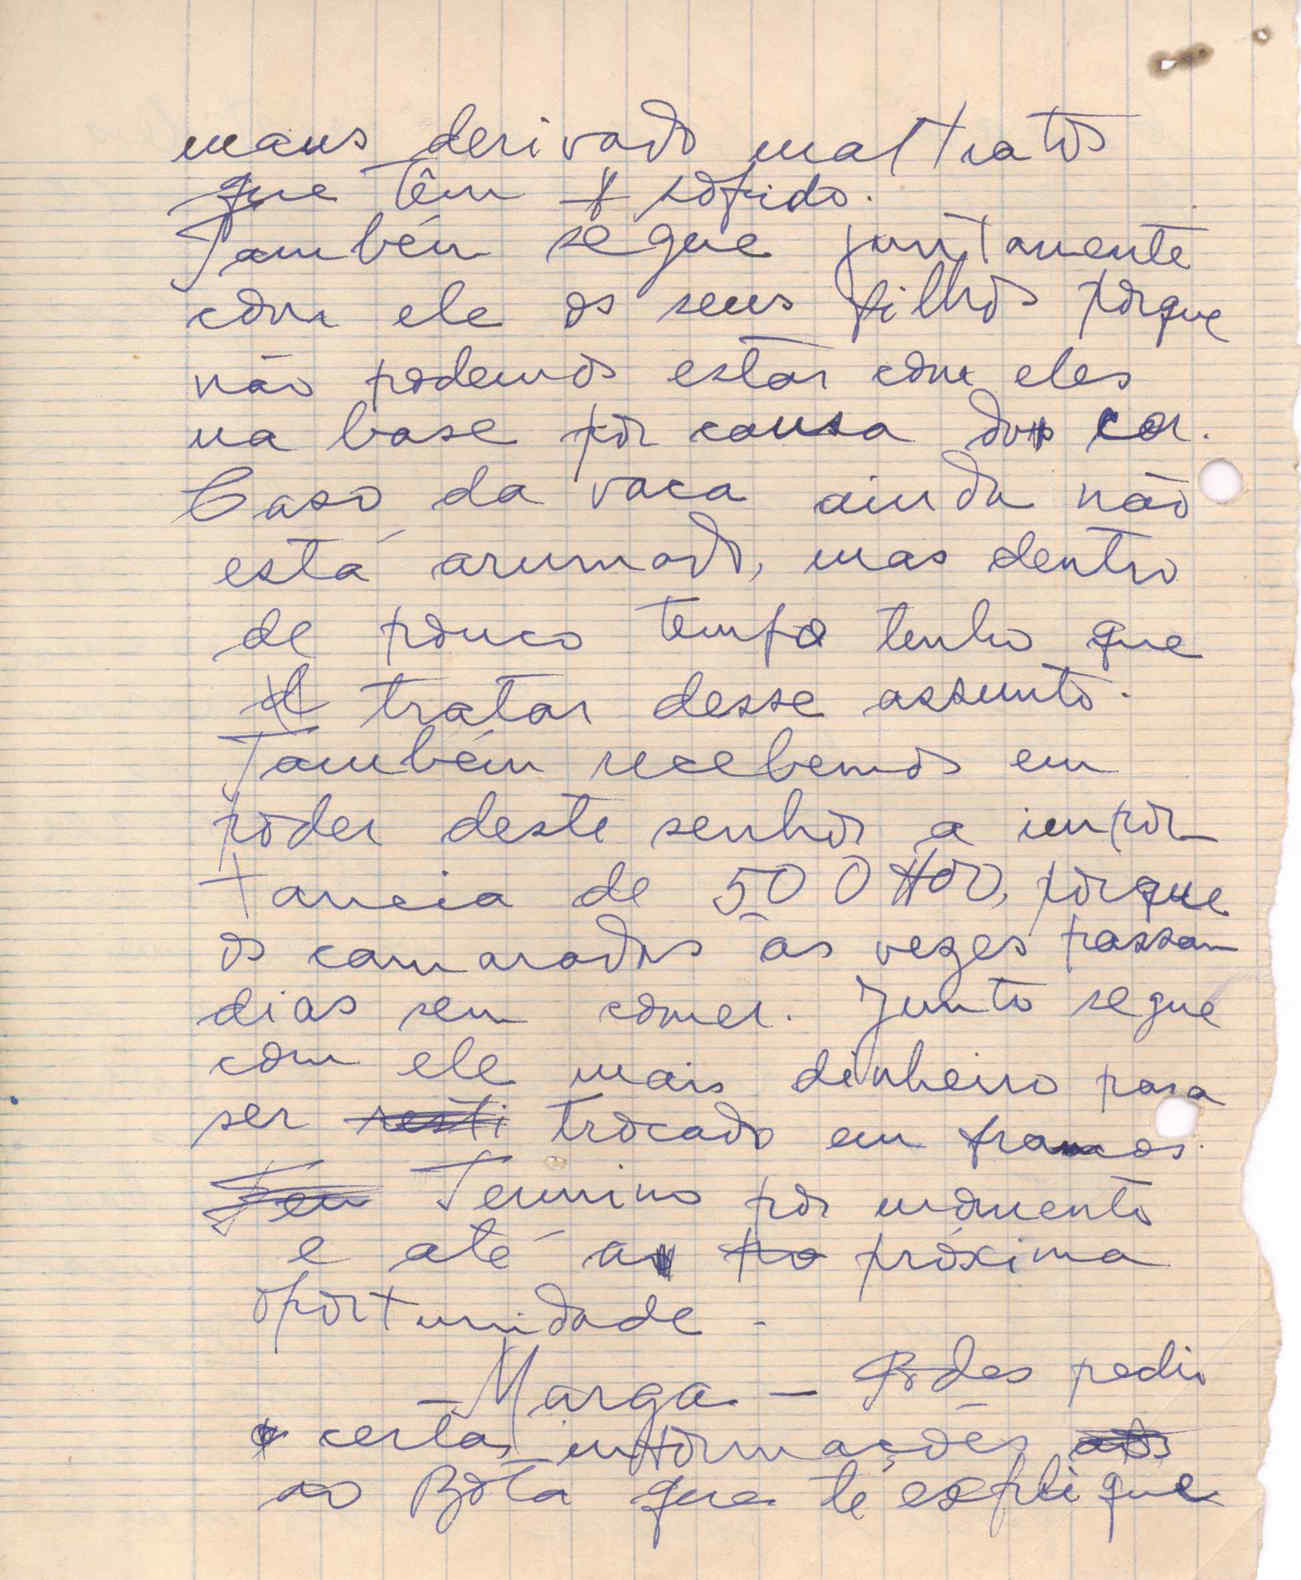 maus derivado maltratos
que têm sofrido.
Também segue juntamente
com ele os seus filhos porque
não podemos estar com eles
na base por causa do cor.
Caso da vaca ainda não
está arumado, mas dentro
de pouco tempo tenho que
tratar desse assunto.
Também recebemos em
poder deste senhor a impor
tancia de 500$00, porque
os camarados às vezes passam
dias sem comer. Junto segue
com ele mais dinheiro para
ser resti trocado em francos.
Termino por momento
e até a pro próxima
oportunidade -
- Marga - Podes pedir
certas informações aos
ao Bóta que te explique